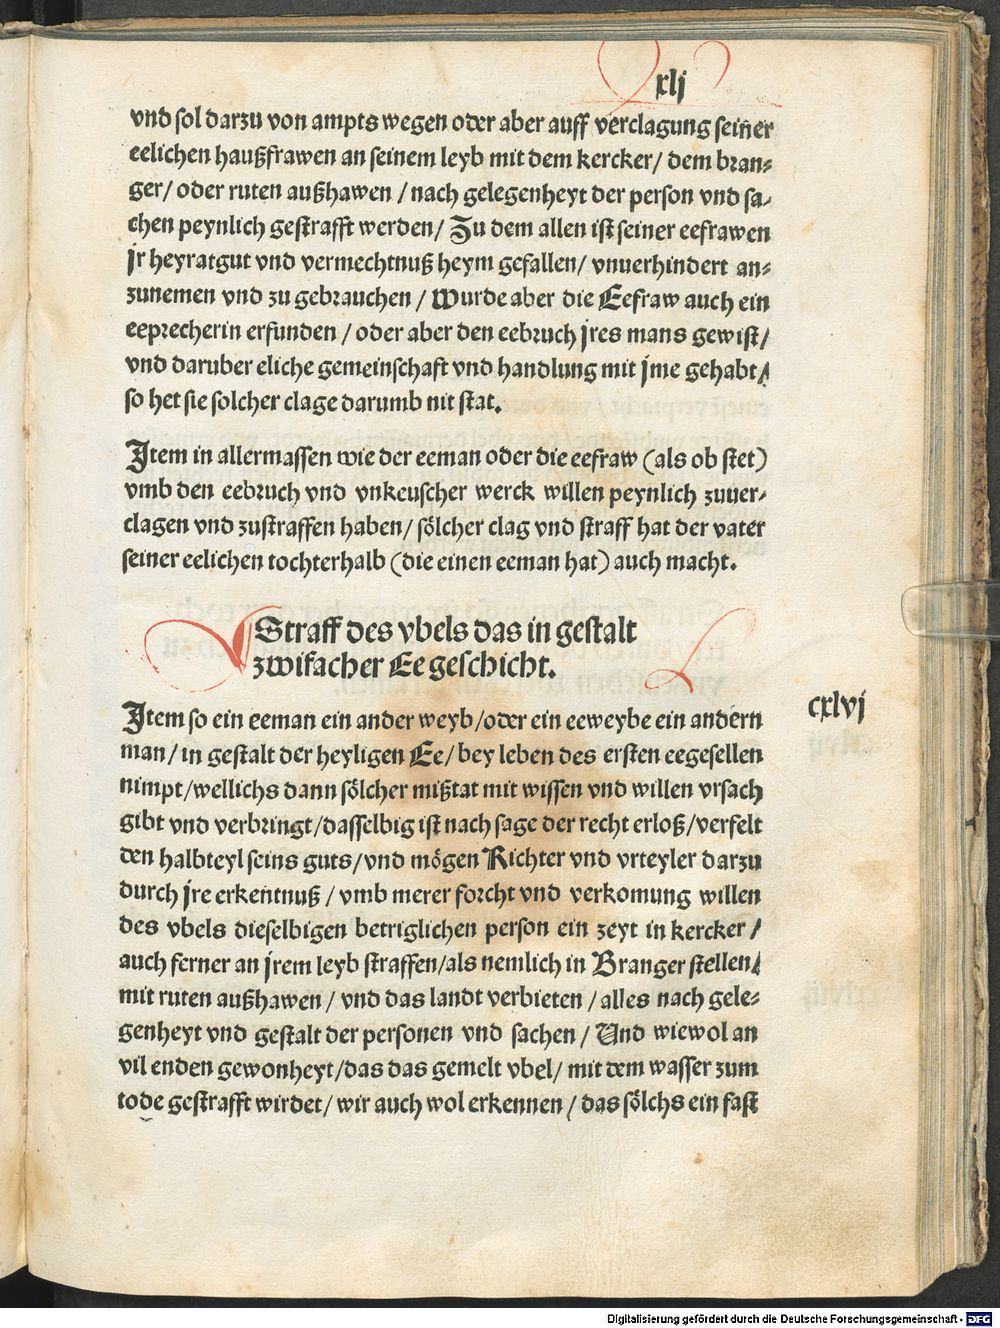 xlj
vnd sol darzu von ampts wegen oder aber auff verclagung seiner
eelichen haußfrawen an seinem leyb mit dem kercker/ dem bran⸗
ger/ oder ruten außhawen / nach gelegenheyt der person vnd sa⸗
chen peynlich gestrafft werden/ Zu dem allen ist seiner eefrawen
jr heyratgut vnd vermechtnuß heym gefallen/ vnuerhindert an⸗
zunemen vnd zu gebrauchen / Wurde aber die Eefraw auch ein
eeprecherin erfunden / oder aber den eebruch jres mans gewist/
vnd daruber eliche gemeinschaft vnd handlung mit jme gehabt/
so het sie solcher clage darumb nit stat.
Jtem in allermassen wie der eeman oder die eefraw (als ob stet)
vmb den eebruch vnd vnkeuscher werck willen peynlich zuuer⸗
clagen vnd zustraffen haben/ sölcher clag vnd straff hat der vater
seiner eelichen tochterhalb (die einen eeman hat) auch macht.
Straff des vbels das in gestalt
zwifacher Ee geschicht.
cxlvj
Jtem so ein eeman ein ander weyb/oder ein eeweybe ein andern
man/ in gestalt der heyligen Ee/ bey leben des ersten eegesellen
nimpt/wellichs dann sölcher mißtat mit wissen vnd willen vrsach
gibt vnd verbringt/dasselbig ist nach sage der recht erloß/verfelt
den halbteyl seins guts/vnd mögen Richter vnd vrteyler darzu
durch jre erkentnuß / vmb merer forcht vnd verkomung willen
des vbels dieselbigen betriglichen person ein zeyt in kercker/
auch ferner an jrem leyb straffen/als nemlich in Branger stellen/
mit ruten außhawen / vnd das landt verbieten / alles nach gele⸗
genheyt vnd gestalt der personen vnd sachen / Und wiewol an
vil enden gewonheyt/das das gemelt vbel/ mit dem wasser zum
tode gestrafft wirdet/ wir auch wol erkennen / das sölchs ein fast
Digitalisierung gefördert durch die Deutsche Forschungsgemeinschaft - DFG